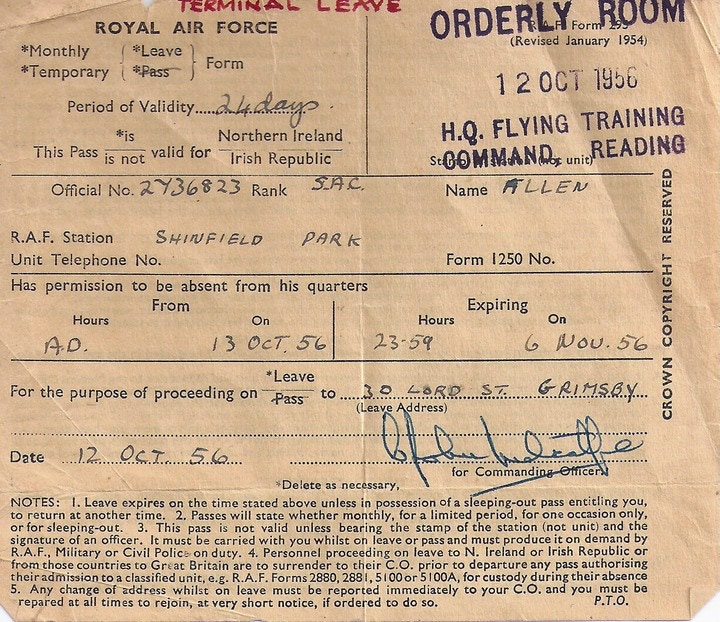 TERMINAL LEAVE
ROYAL AIR FORCE
ORDERLY ROOM
R.A.F. Form 295
(Revised January 1954)
*Monthly *Leave
*Temporary *Pass Form
12 OCT 1956
Period of Validity 24 days.
H.Q. FLYING TRAINING
COMMAND, READING
*is Northern Ireland
This Pass is not valid for Irish Republic
(not unit)
Official No. 2736823 Rank S.A.C. Name ALLEN
R.A.F. Station SHINFIELD PARK
Unit Telephone No. Form 1250 No.
Has permission to be absent from his quarters
From Expiring
Hours On Hours On
A.D. 13 OCT. 56 23-59 6 NOV. 56
*Leave
For the purpose of proceeding on Pass to 30 LORD ST. GRIMSBY
(Leave Address)
Date 12 OCT. 56
for Commanding Officer
*Delete as necessary,
NOTES: 1. Leave expires on the time stated above unless in possession of a sleeping-out pass entitling you,
to return at another time. 2. Passes will state whether monthly, for a limited period, for one occasion only,
or for sleeping-out. 3. This pass is not valid unless bearing the stamp of the station (not unit) and the
signature of an officer. It must be carried with you whilst on leave or pass and must produce it on demand by
R.A.F., Military or Civil Police on duty. 4. Personnel proceeding on leave to N. Ireland or Irish Republic or
from those countries to Great Britain are to surrender to their C.O. prior to departure any pass authorising
their admission to a classified unit, e.g. R.A.F. Forms 2880, 2881, 5100 or 5100A, for custody during their absence
5. Any change of address whilst on leave must be reported immediately to your C.O. and you must be
repared at all times to rejoin, at very short notice, if ordered to do so. P.T.O.
CROWN COPYRIGHT RESERVED